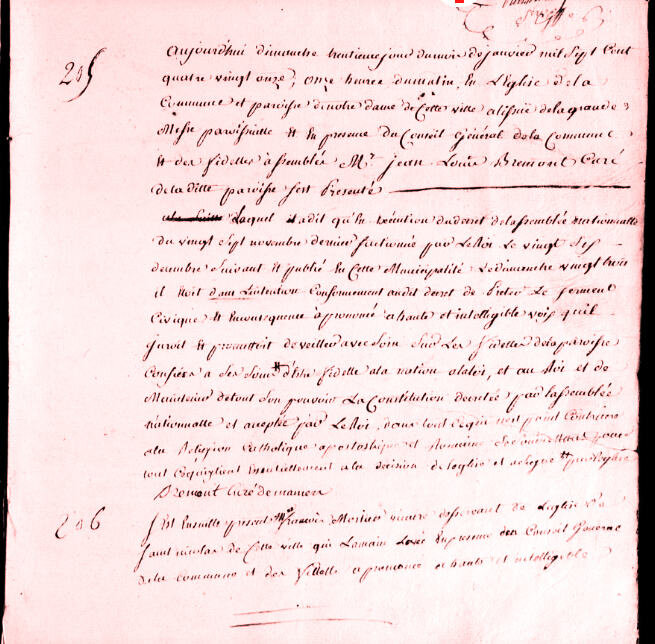 205
aujourd'hui dimanche trentieme jour du mois de janvier mil sept cent
quatre vingt onze, onze heures du matin, En L'Eglise de la
Commune et paroisse de notre dame de Cette ville a lissüe de la grande
Messe paroissialle Et En presence du Conseil général de la Commune
Et des fidelles assemblés Mr. jean Louis Bremont Curé
de la ditte paroisse s'est Presenté
Lequel a dit qu'En Execution du decret de l'assemblée nationnalle
du vingt Sept novembre dernier sanctionné par Le Roi Le vingt six
decembre Suivant Et publié En Cette Municipalité Le dimanche vingt trois
il Etoit dans L'intention Conformement audit decret de Preter Le serment
Civique Et En consequence a prononcé a haute et intelligible voix qu'il
juroit Et promettoit de veiller avec soin sur Les fidelles de la paroisse
Confiés a ses soins d'Etre fidelle a la nation a la loi, et au Roi et de
Maintenir de tout Son pouvoir La Constitution decretée par l'assemblée
nationnalle et acceptée par Le Roi, dans tout ce qui n'est point Contraire
a la Religion Catholique apostolique et Romaine
tout Ce qui tient Essentiellement a la decision de l'eglise et a signé
Bremont Curé de
206
s'Est Ensuitte presenté Mr vicaire desservant de L'eglise
Saint nicolas de Cette ville qui La main Levée En presence du Conseil General
de la Commune et des fidelles a prononcé a haute et intelligible